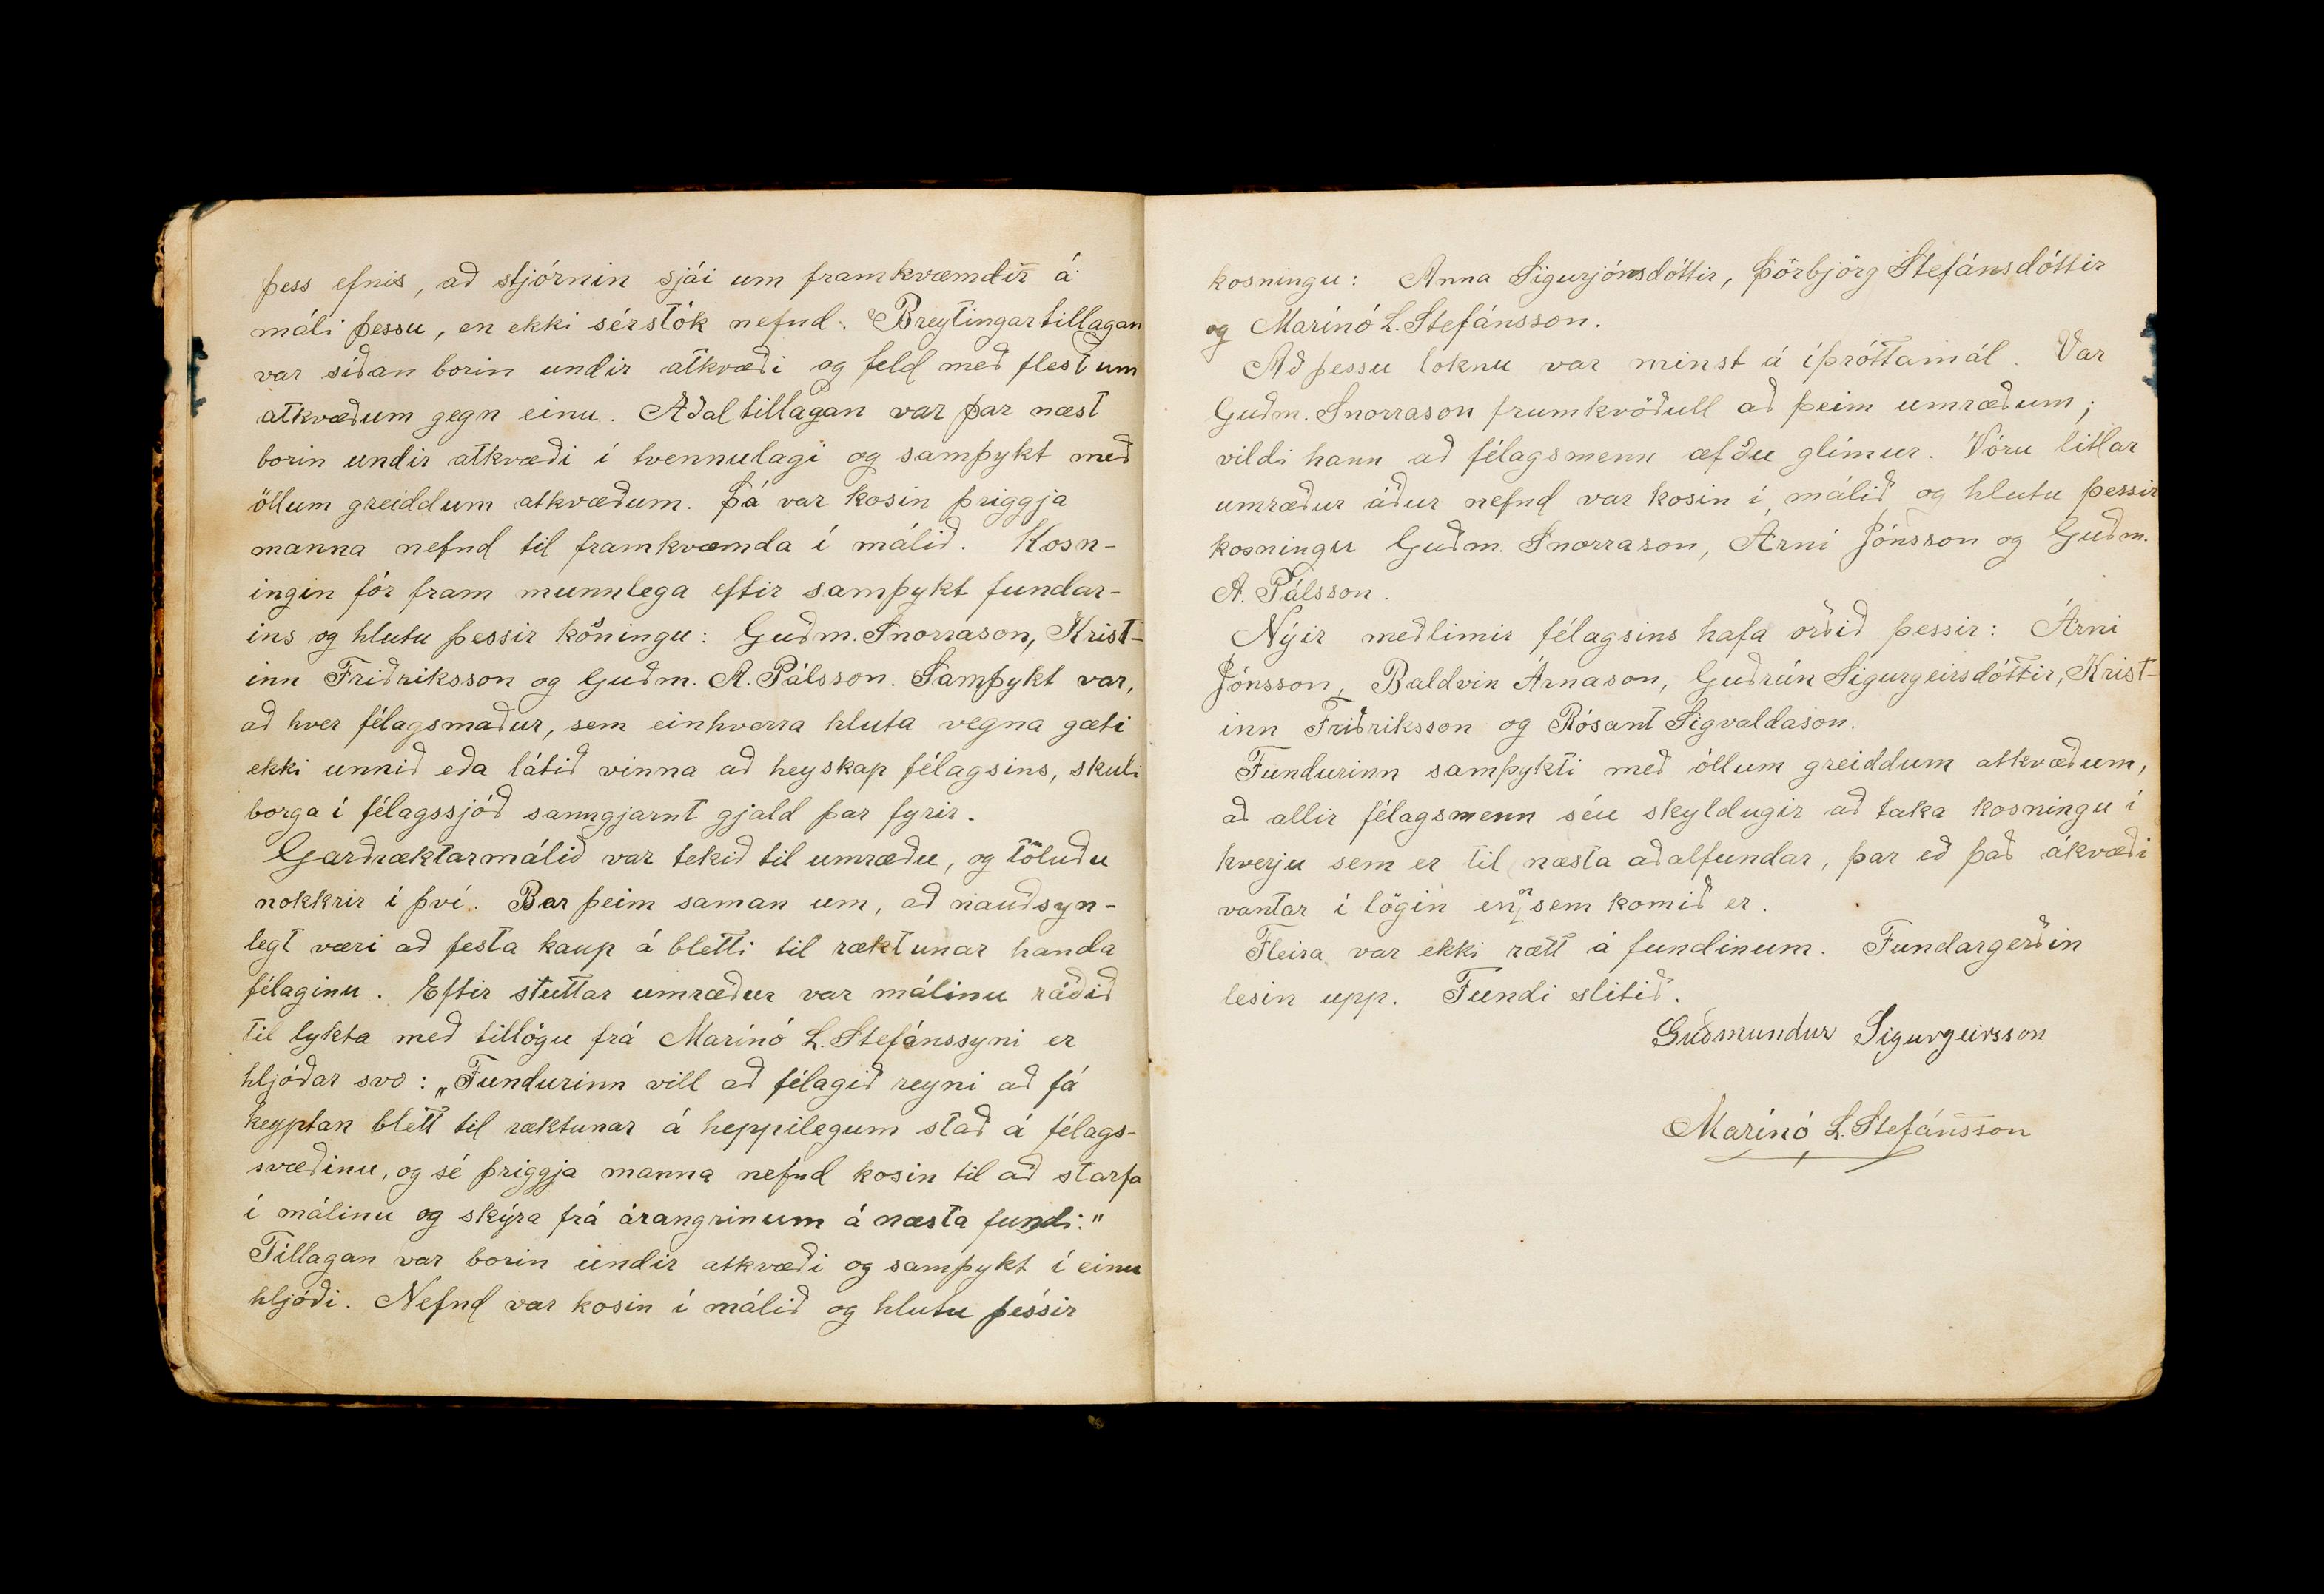 þess efnis, að stjórnin sjái um framkvæmdir á
máli þessu, en ekki sérstök nefnd. Breytingartillagan
var síðan borin undir atkvæði og feld með flestum
atkvæðum gegn einu. Aðaltillagan var þar næst
borin undir atkvæði í tvennulagi og samþykt með
öllum greiddum atkvæðum. Þá var kosin þriggja
manna nefnd til framkvæmda í málið. Kosn-
ingin fór fram munnlega eftir samþykt fundar-
ins og hlutu þessir köningu: Guðm. Snorrason, Krist-
inn Friðriksson og Guðm. A. Pálsson. Samþykt var,
að hver félagsmaður, sem einhverra hluta vegna gæti
ekki unnið eða látið vinna að heyskap félagsins, skuli
borga í félagssjóð sanngjarnt gjald þar fyrir.
Garðræktarmálið var tekið til umræðu, og töluðu
nokkrir í því. Bar þeim saman um, að nauðsyn-
legt væri að festa kaup á bletti til ræktunar handa
félaginu. Eftir stuttar umræður var málinu ráðið
til lykta með tillögu frá Marínó L. Stefánssyni er
hljóðar svo: „Fundurinn vill að félagið reyni að fá
keyptan blett til ræktunar á heppilegum stað á félags-
svæðinu, og sé þriggja manna nefnd kosin til að starfa
í málinu og skýra frá árangrinum á næsta fundi."
Tillagan var borin undir atkvæði og samþykt í einu
hljóði. Nefnd var kosin í málið og hlutu þessir
kosningu: Anna Sigurjónsdóttir, Þórbjörg Stefánsdóttir
og Marínó L. Stefánsson.
Að þessu loknu var minst á íþróttamál. Var
Guðm. Snorrason frumkvöðull að þeim umræðum;
vildi hann að félagsmenn æfðu glímur. Vóru litlar
umræður áður nefnd var kosin í málið og hlutu þessir
kosningu Guðm. Snorrason, Árni Jónsson og Guðm.
A. Pálsson.
Nýir meðlimir félagsins hafa orðið þessir: Árni
Jónsson, Baldvin Árnason, Guðrún Sigurgeirsdóttir, Krist-
inn Friðriksson og Rósant Sigvaldason.
Fundurinn samþykti með öllum greiddum atkvæðum,
að allir félagsmenn séu skyldugir að taka kosningu í
hverju sem er til næsta aðalfundar, þar eð það ákvæði
vantar í lögin enn sem komið er.
Fleira var ekki rætt á fundinum. Fundargerðin
lesin upp. Fundi slitið.
Guðmundur Sigurgeirsson
Marínó L. Stefánsson